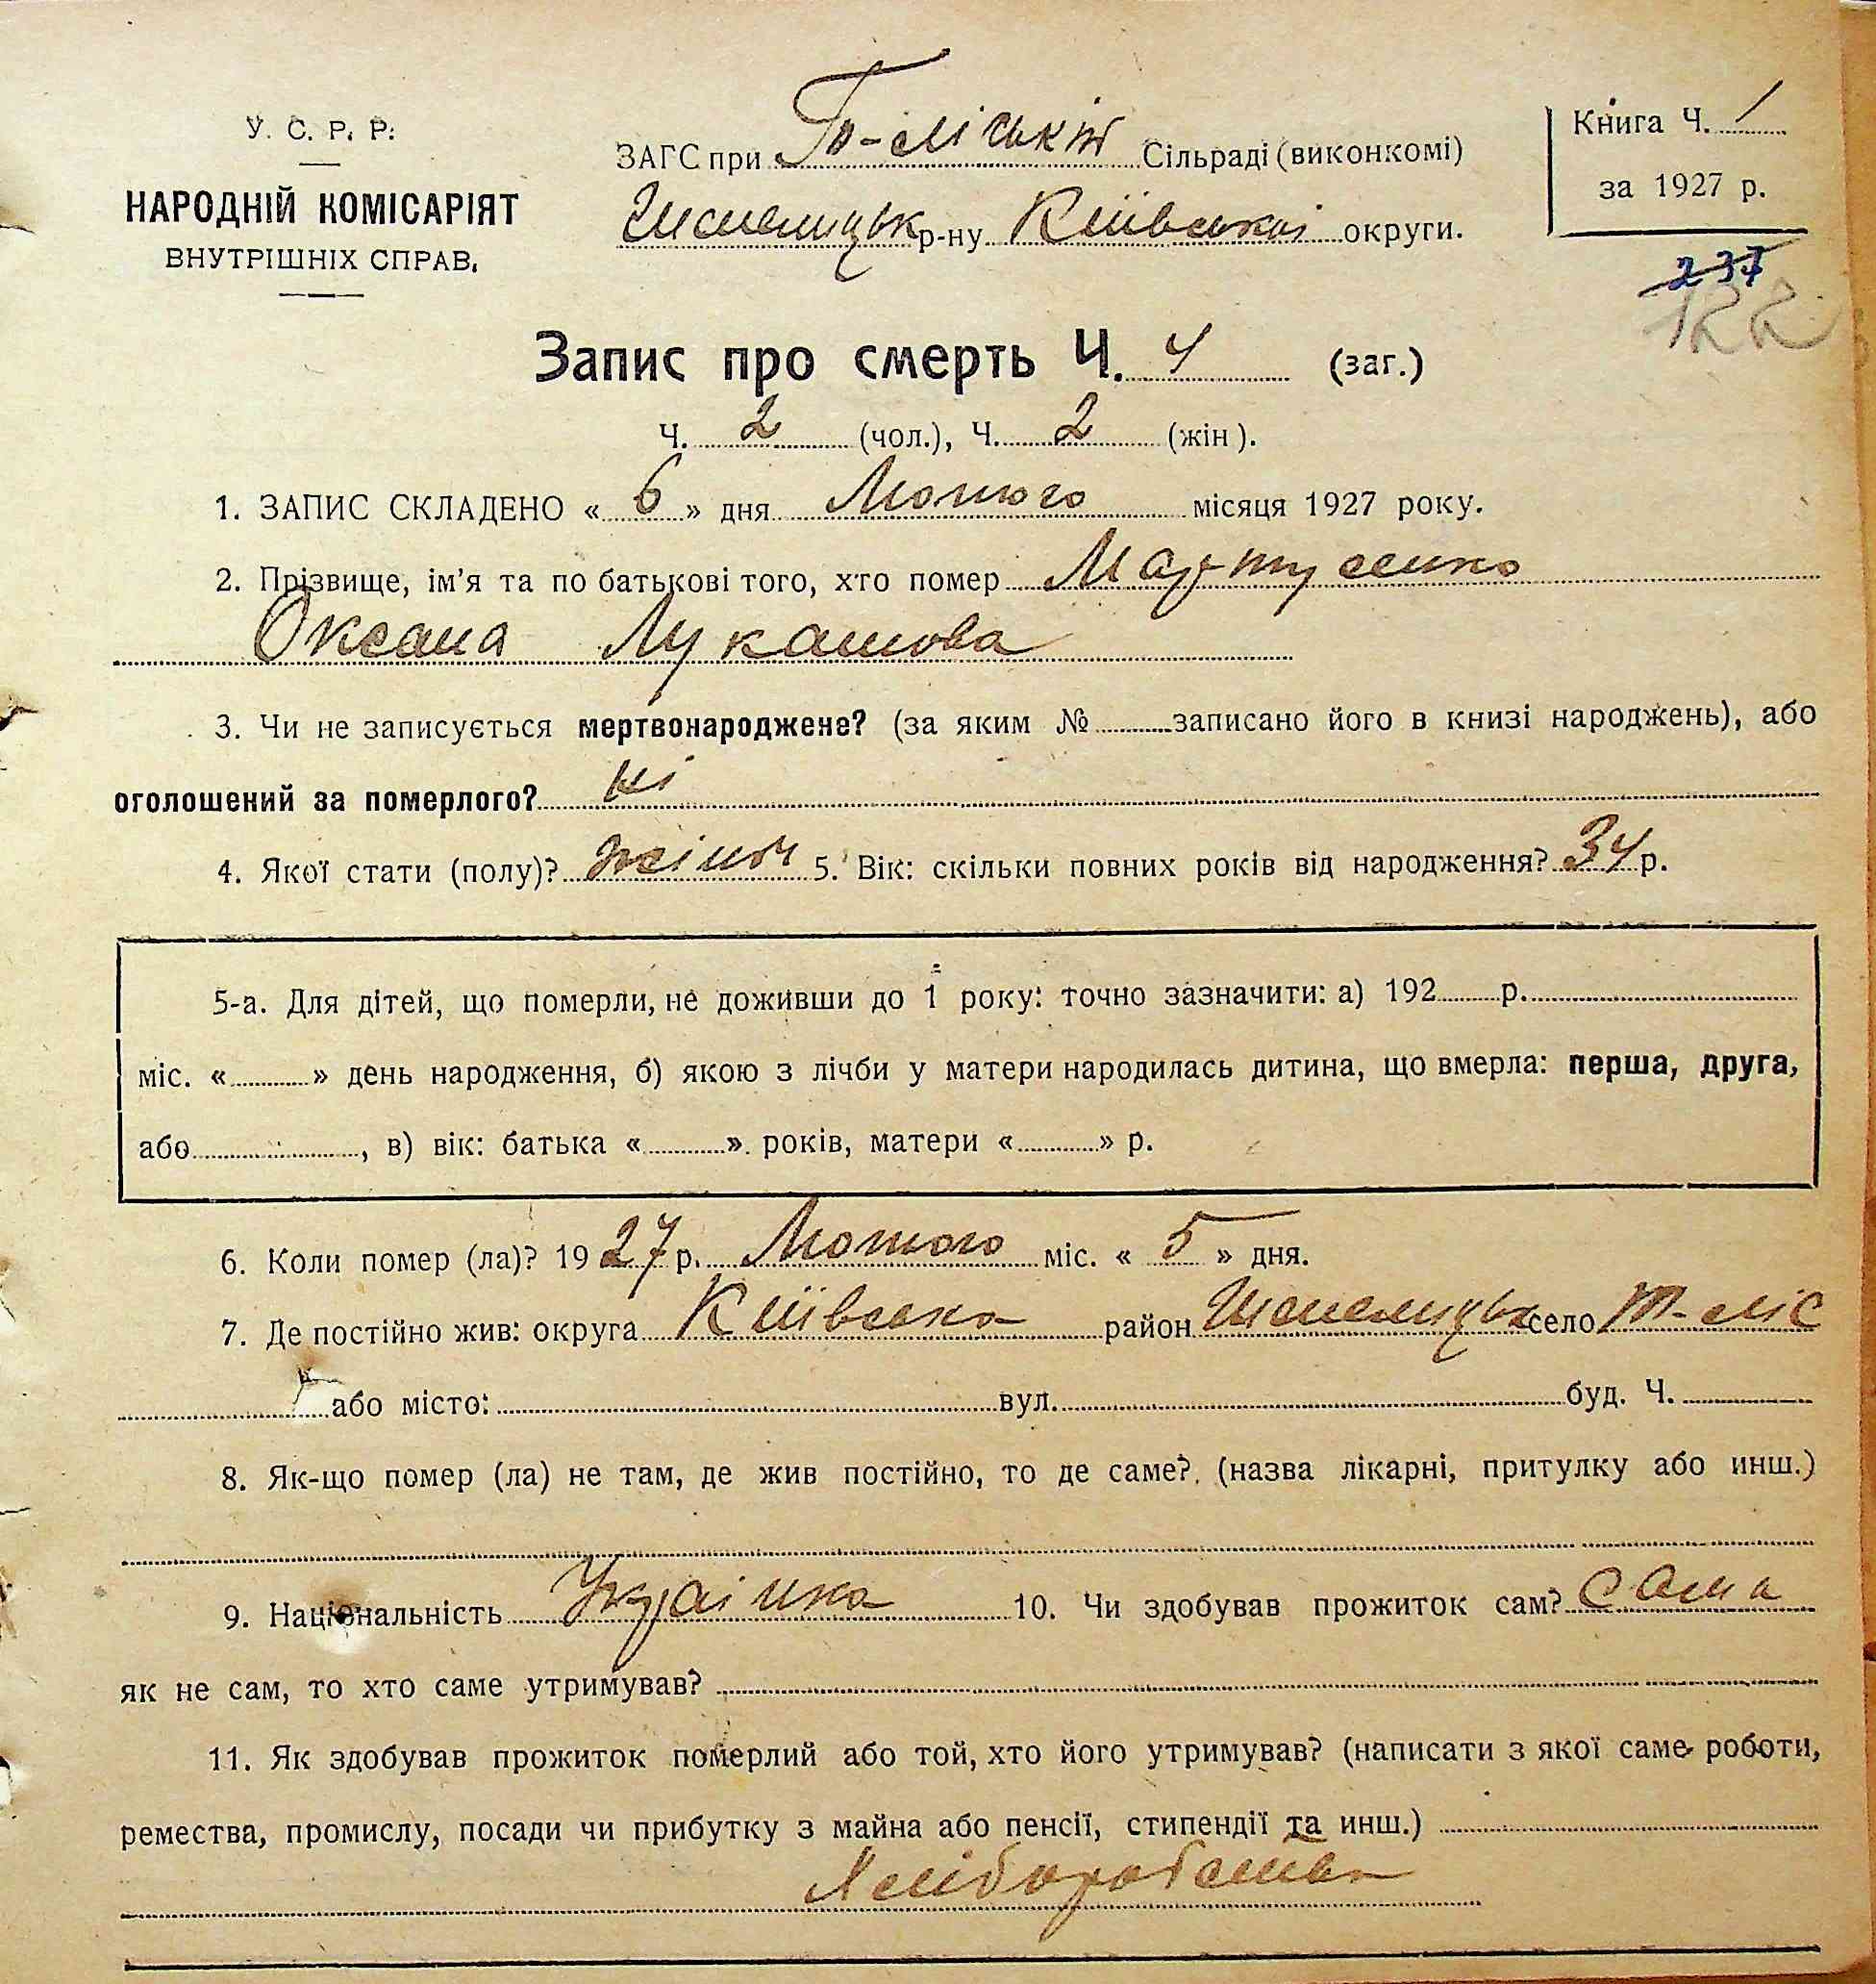 У. С. Р. Р.
НАРОДНІЙ КОМІСАРІЯТ
ВНУТРІШНІХ СПРАВ.
ЗАГС при То-лісьkій Сільраді (виконкомі)
Шепелицьк р-ну Київської округи.
Книга Ч. 1
за 1927 р.
237
122
Запис про смерть Ч. 4 (заг.)
Ч. 2 (чол.), Ч. 2 (жін).
1. ЗАПИС СКЛАДЕНО « 6 » дня Лютого місяця 1927 року.
2. Прізвище, ім'я та по батькові того, хто помер Мартусенко
Оксана Лукашова
3. Чи не записується мертвонароджене? (за яким № записано його в книзі народжень), або
оголошений за померлого? ні
4. Якої стати (полу)? жіноч 5. Вік: скільки повних років від народження? 34 р.
5-а. Для дітей, що померли, не доживши до 1 року: точно зазначити: а) 192 р.
міс. « » день народження, б) якою з лічби у матери народилась дитина, що вмерла: перша, друга,
або , в) вік: батька « » років, матери « » р.
6. Коли помер (ла)? 1927 р. Лютого міс. « 5 » дня.
7. Де постійно жив: округа Київська район Шепелицьк село Т-ліс
або місто: вул. буд. Ч.
8. Як-що помер (ла) не там, де жив постійно, то де саме? (назва лікарні, притулку або инш.)
9. Національність Українка 10. Чи здобував прожиток сам? сама
як не сам, то хто саме утримував?
11. Як здобував прожиток померлий або той, хто його утримував? (написати з якої саме роботи,
ремества, промислу, посади чи прибутку з майна або пенсії, стипендії та инш.)
Хліборобства